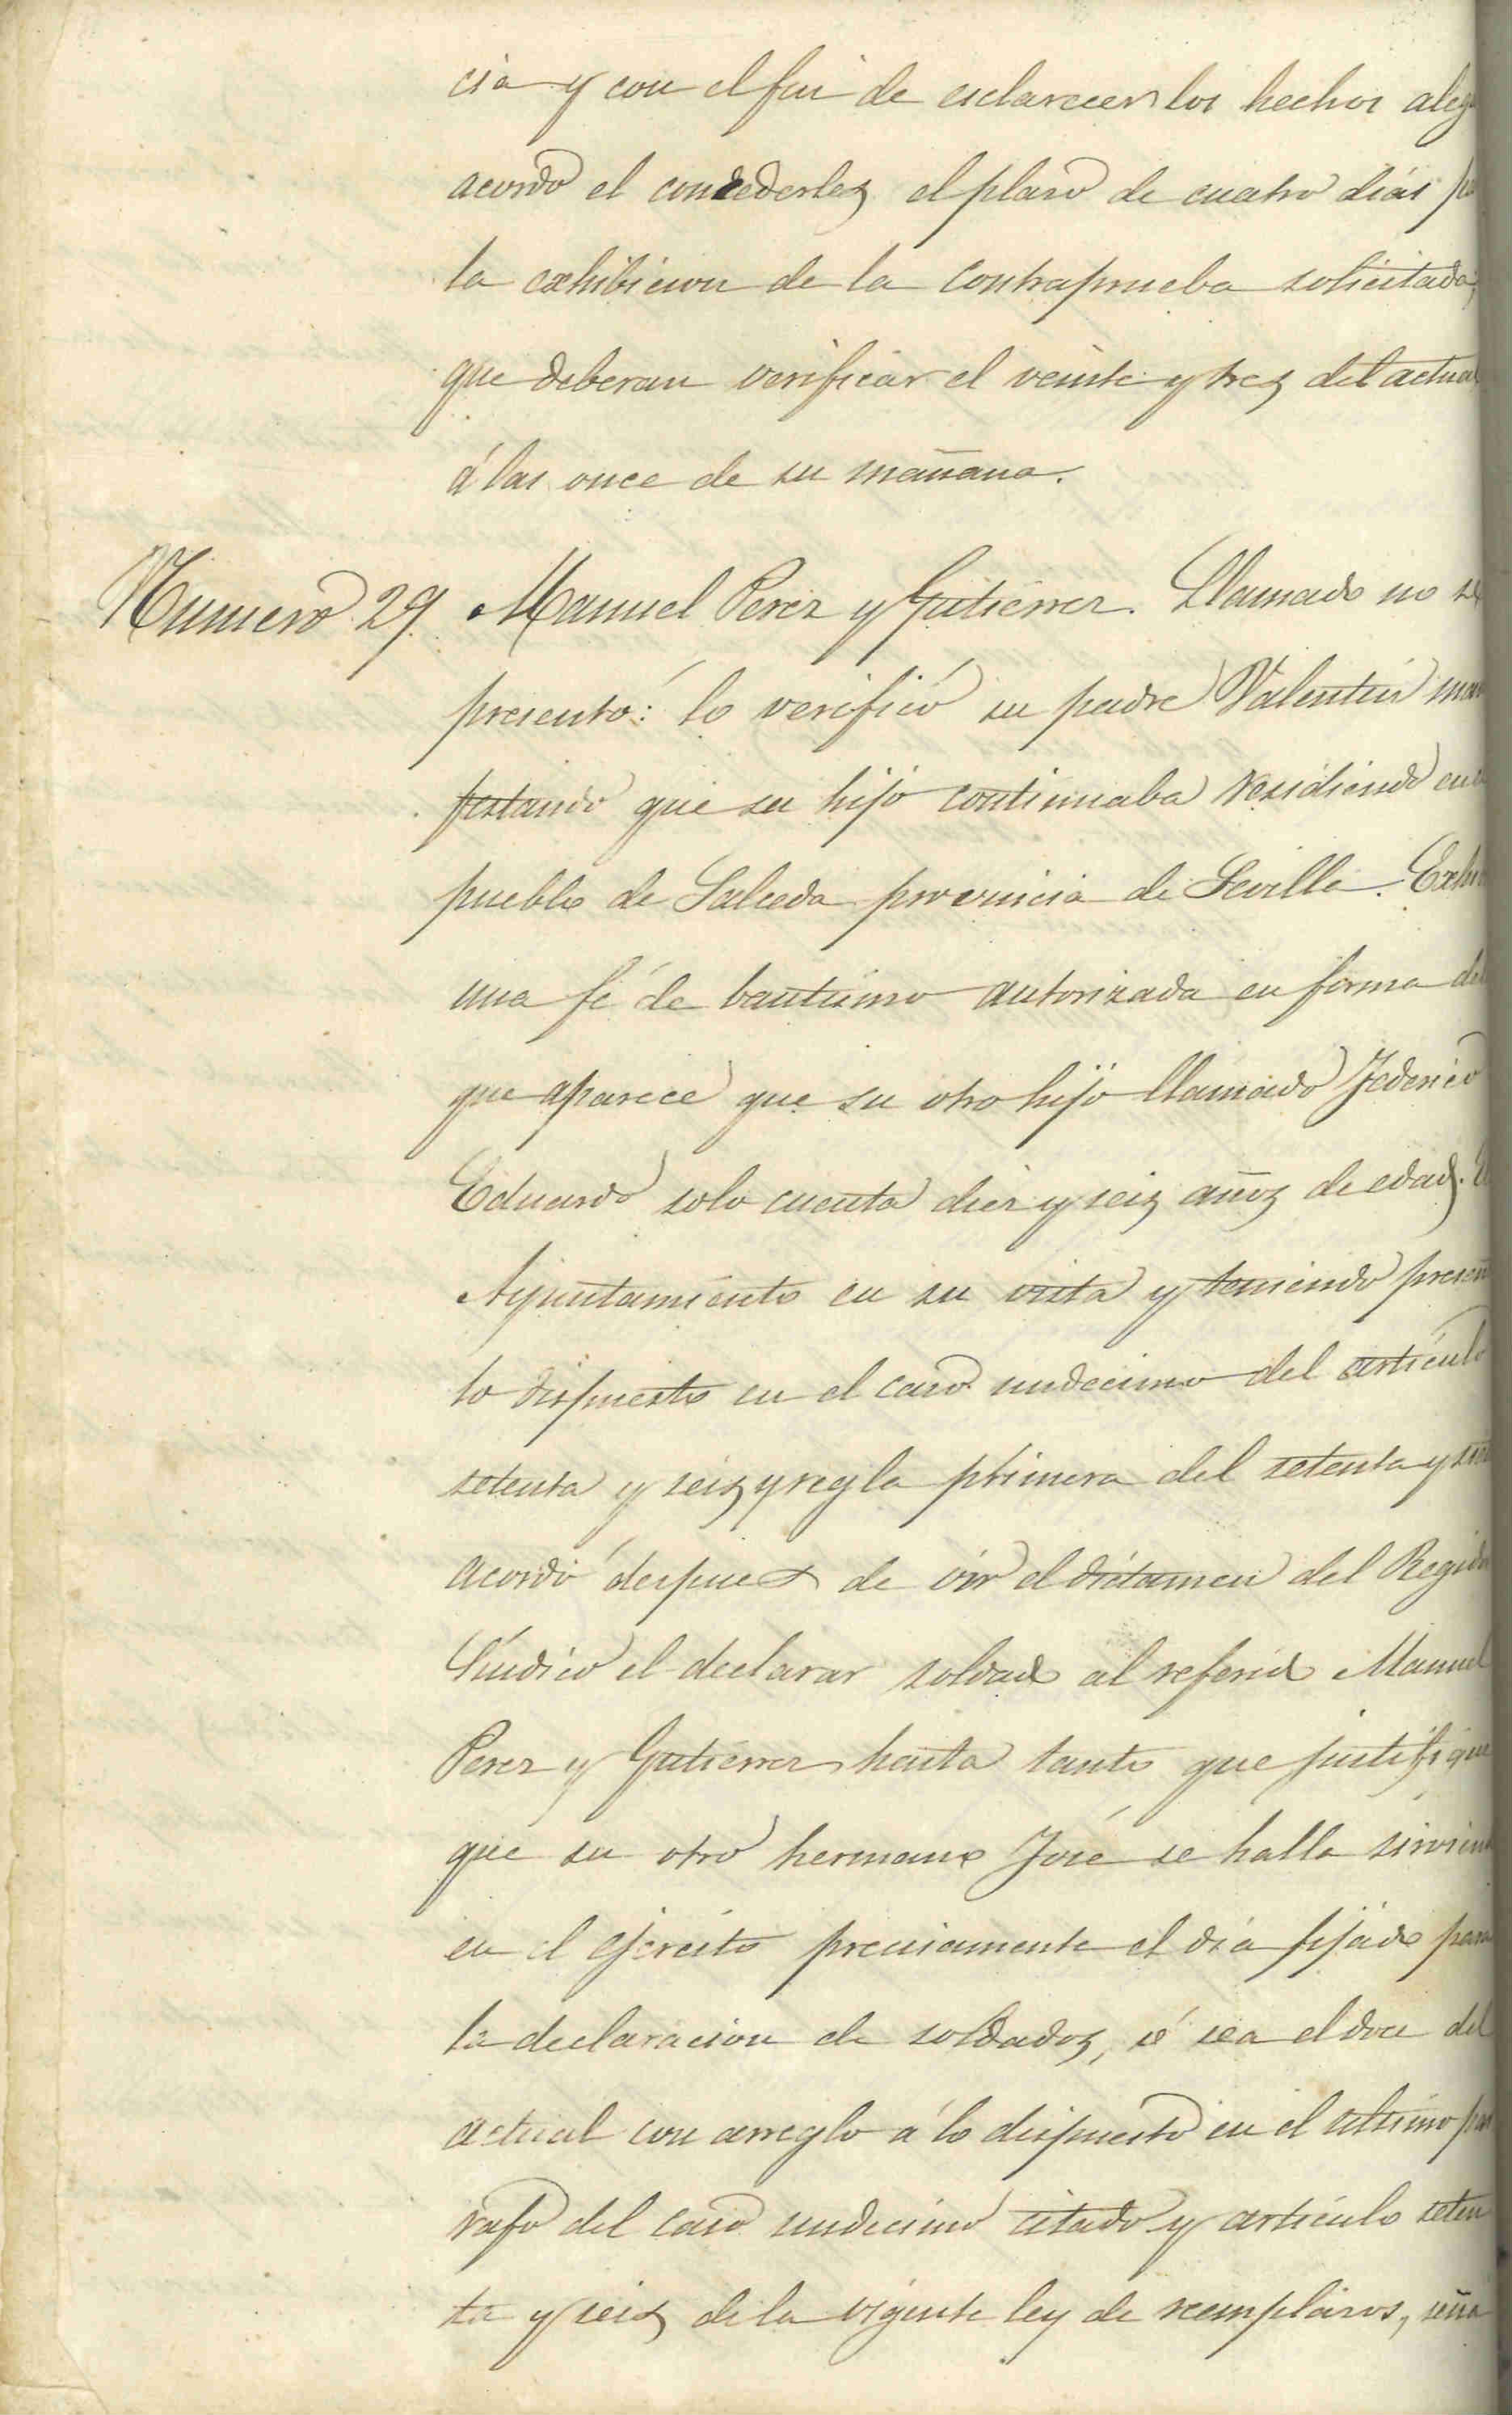 cia y con el fin de esclarecer los hechos aleg
acordó el concederles el plaso de cuatro dias pa
la exhibicion de la contraprueba solicitada;
que deberan verificar el veinte y tres del actual
á las once de su mañana.
Numero 29. Manuel Perez y Gutierrez. Llamado no se
presentó: lo verificó su padre Valentin mani
festando que su hijo continuaba residiendo en el
pueblo de Salceda provincia de Sevilla. Exhi
una fé de bautismo autorizada en forma de
que aparece que su otro hijo llamado Federico
Eduardo solo cuenta diez y seis años de edad. El
Ayuntamiento en su vista y teniendo presen
lo dispuesto en el caso undecimo del artículo
setenta y seis y regla primera del setenta y sie
acordó despues de oir el dictamen del Regidor
Síndico el declarar soldado al referido Manuel
Perez y Gutierrez hasta tanto que justifique
que su otro hermano José se halla sirvien
en el ejercito precisamente el dia fijado para
la declaracion de soldados, ó sea el doce del
actual con arreglo á lo dispuesto en el ultimo par
rafo del caso undecimo citado y artículo seten
ta y seis de la vigente ley de reemplasos, seña